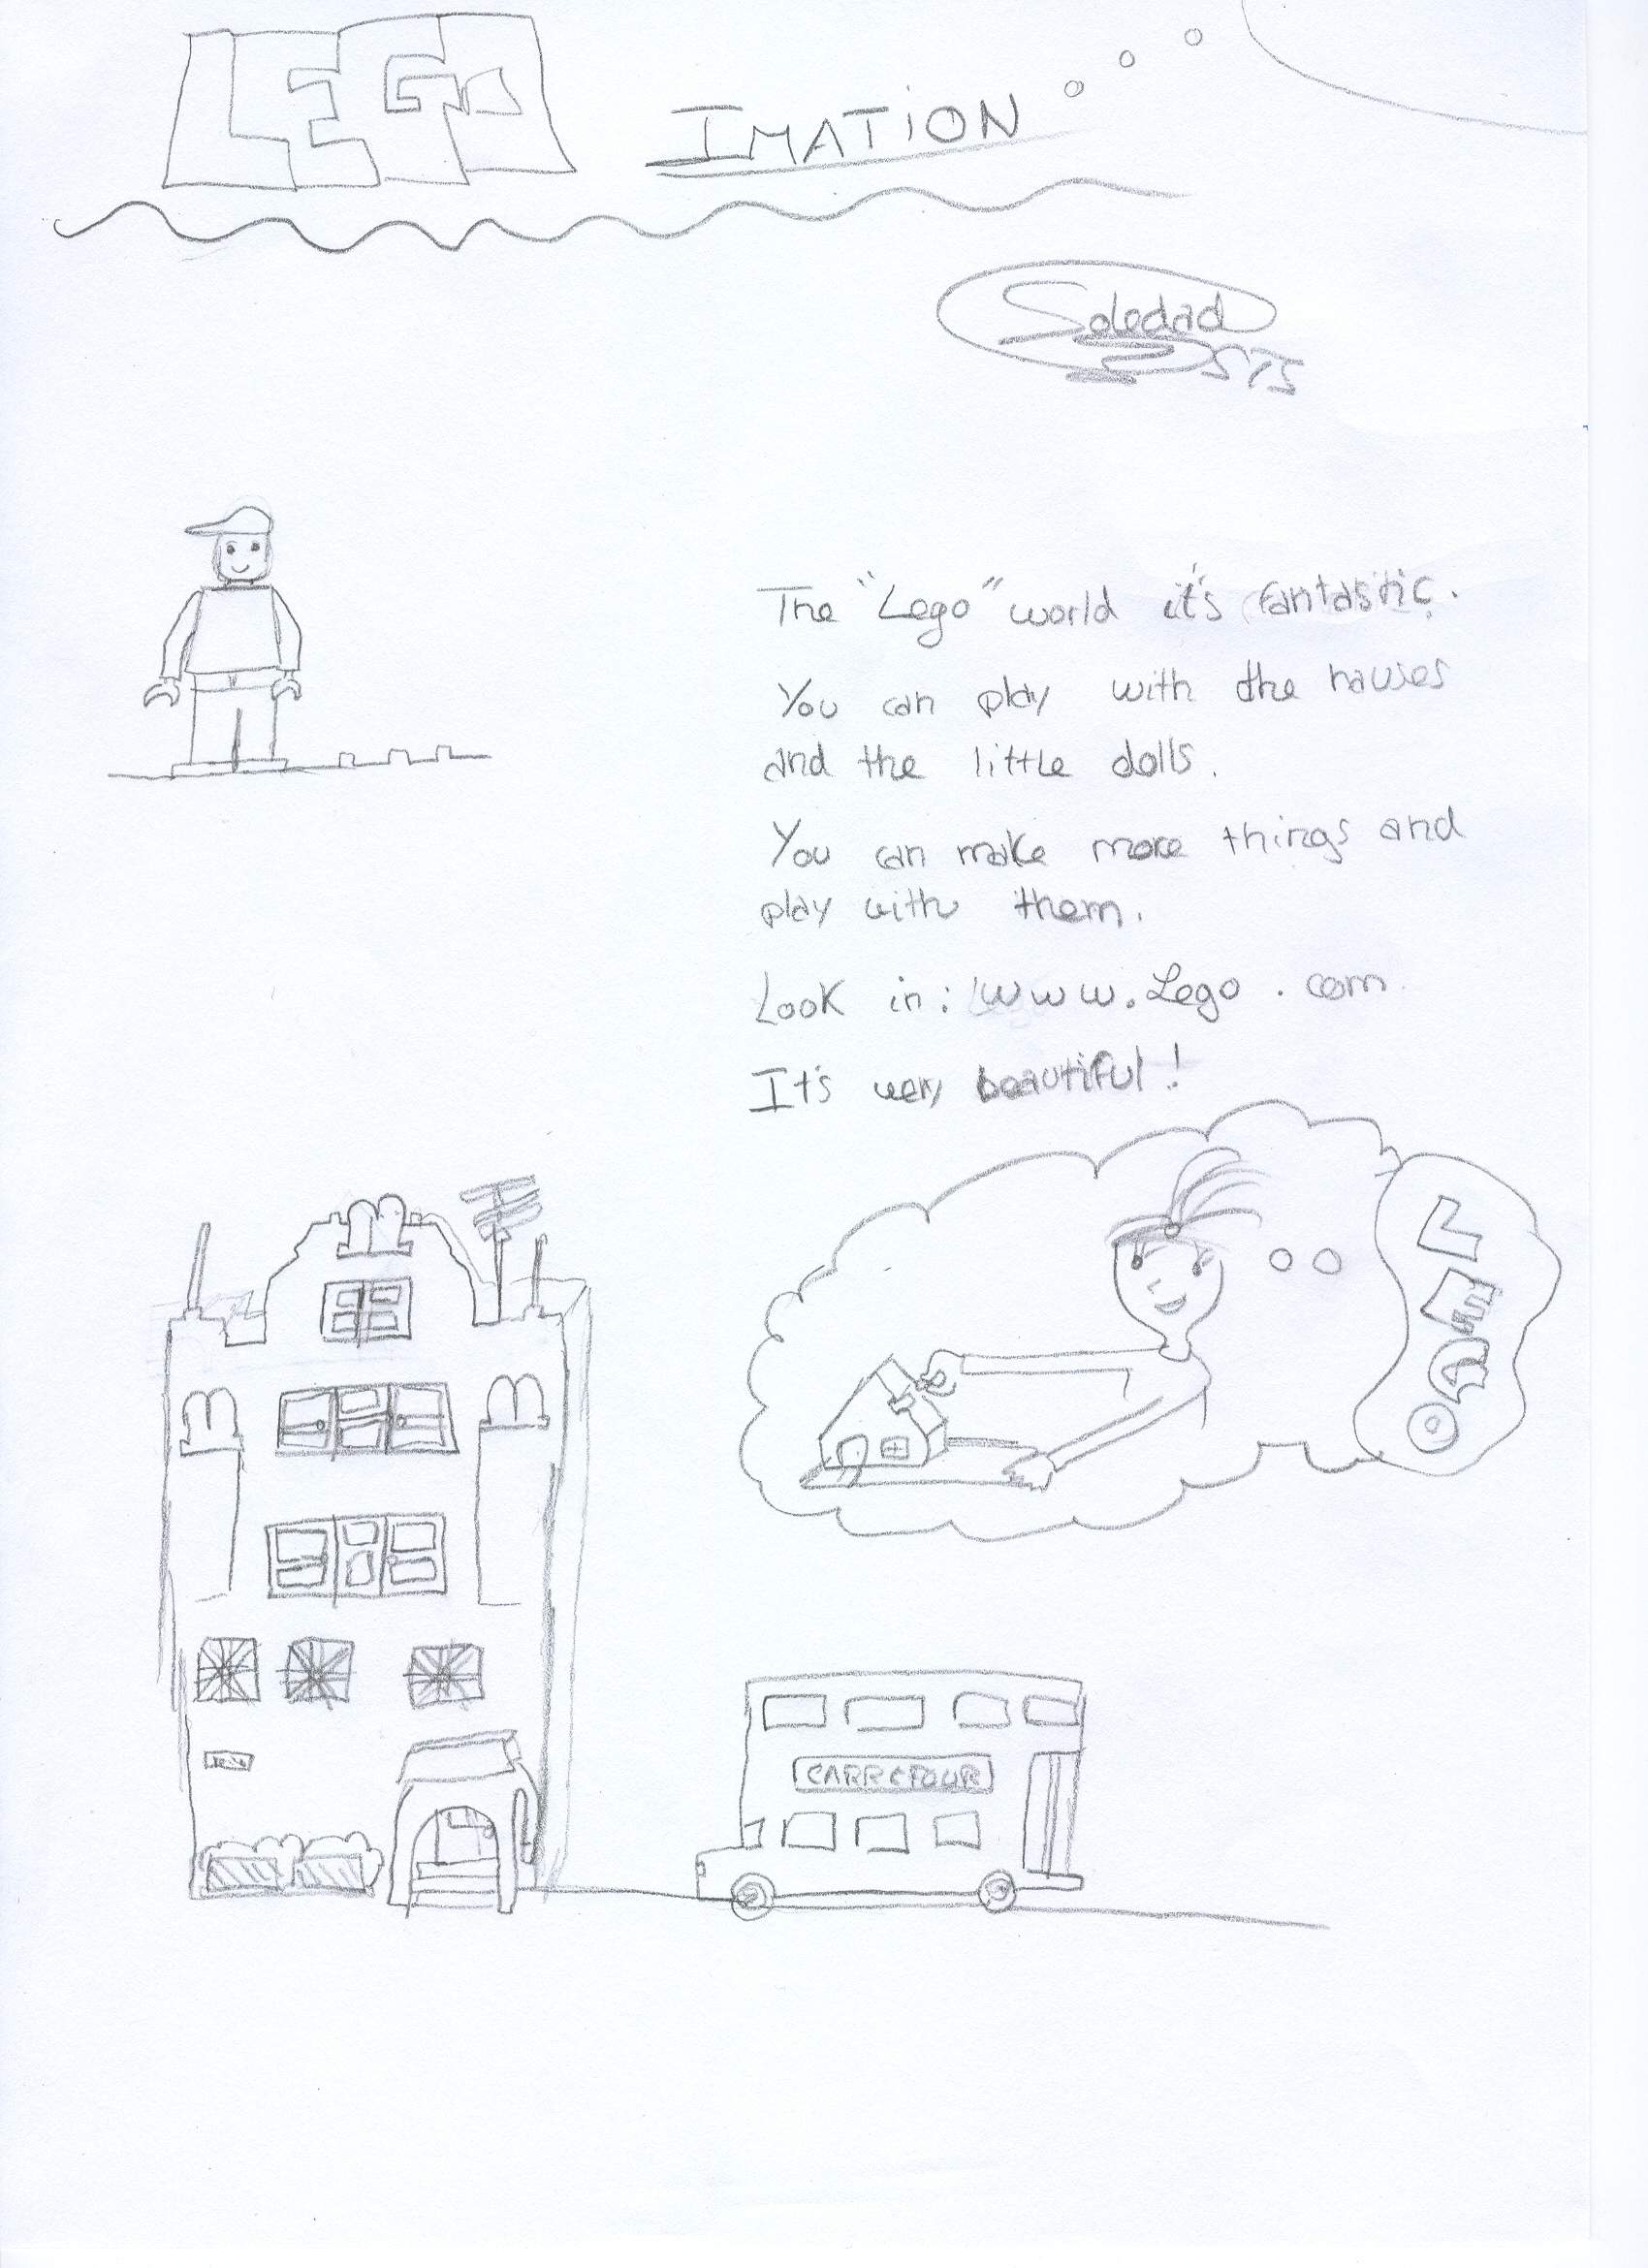 LEGO IMATION
Soledad
The "Lego" world it's fantastic.
You can play with the hauses
and the little dolls.
You can make more things and
play with them.
Look in: www.Lego.com
It's very beautiful!
LEGO
CARREFOUR